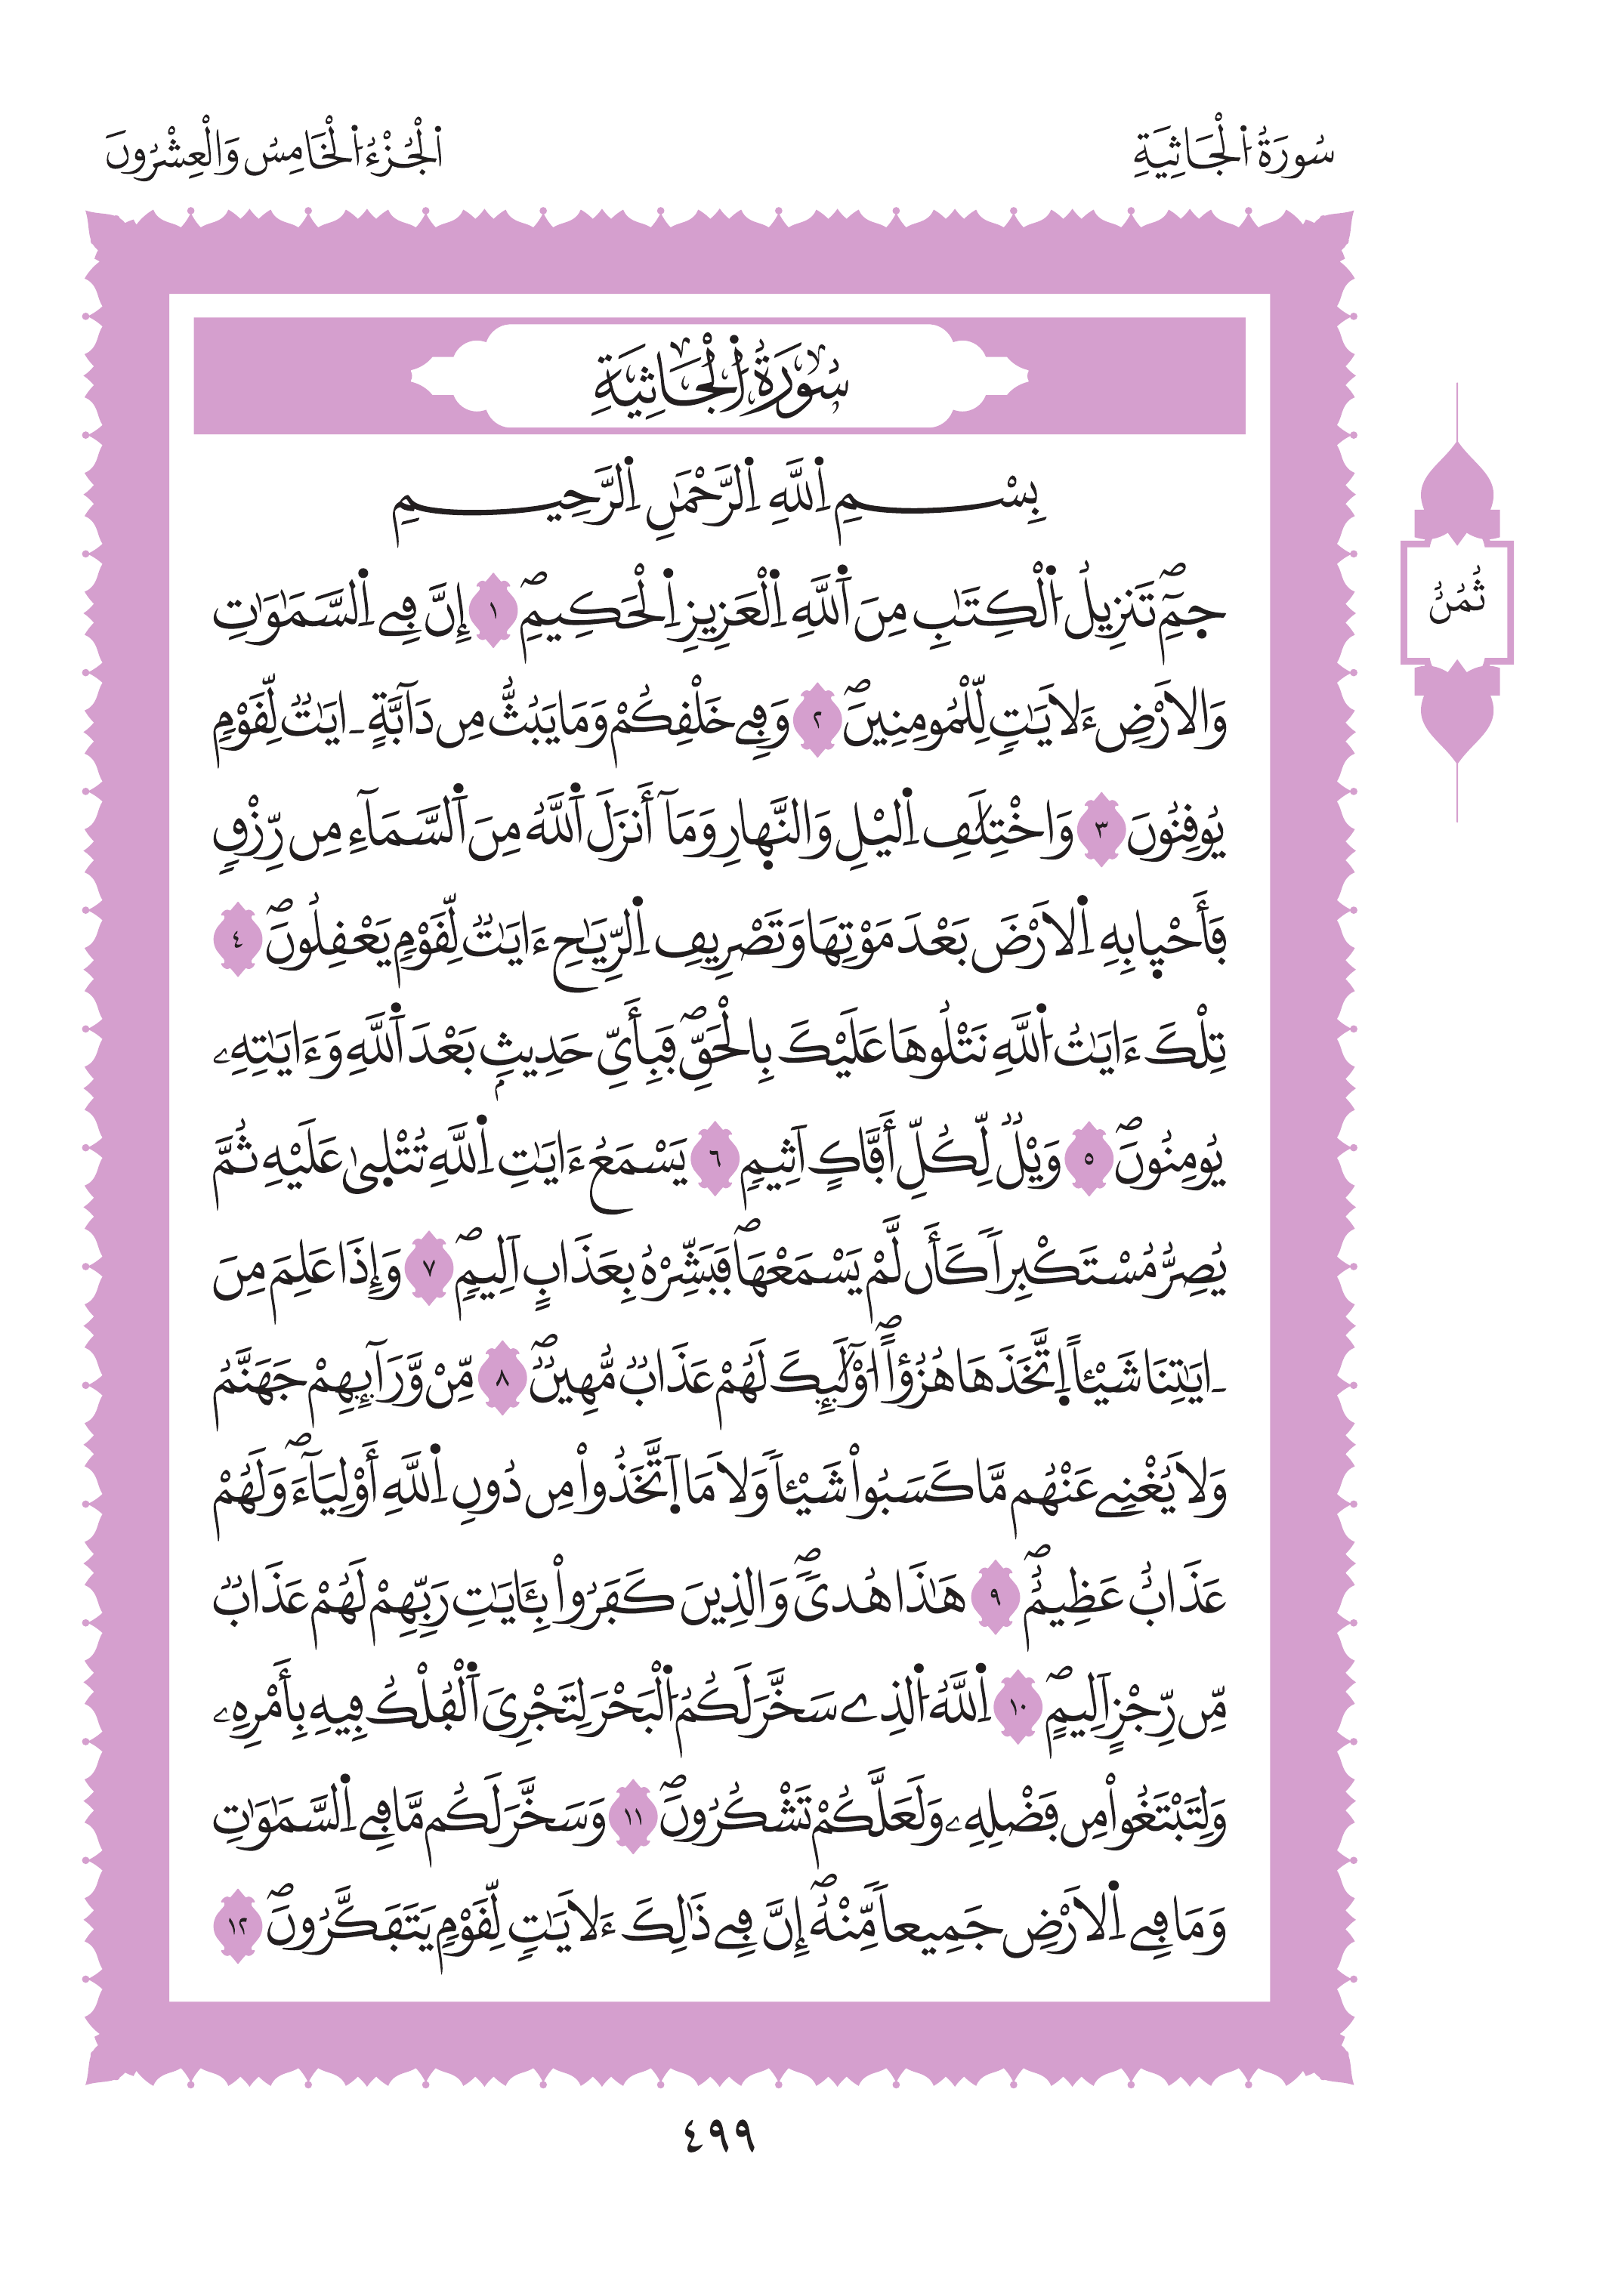 سُورَةُ اُ۬لْجَاثِيَةِ
اَ۬لْجُزْءُ اُ۬لْخَامِسُ وَالْعِشْرُونَ
سُورَةُ اُ۬لْجَاثِيَةِ
بِسْمِ اِ۬للَّهِ اِ۬لرَّحْمَٰنِ اِ۬لرَّحِيمِ
ثُمُنُ
حمِٓۖ تَنزِيلُ اُ۬لْكِتَٰبِ مِنَ اَ۬للَّهِ اِ۬لْعَزِيزِ اِ۬لْحَكِيمِۖ ١ إِنَّ فِے اِ۬لسَّمَٰوَٰتِ
وَالَارْضِ ءَلَايَٰتٖ لِّلْمُومِنِينَۖ ٢ وَفِے خَلْقِكُمْ وَمَا يَبُثُّ مِن دَآبَّةٍ ـ ايَٰتٞ لِّقَوْمٖ
يُوقِنُونَ ٣ وَاخْتِلَٰفِ اِ۬ليْلِ وَالنَّهارِ وَمَآ أَنزَلَ اَ۬للَّهُ مِنَ اَ۬لسَّمَآءِ مِن رِّزْقٖ
فَأَحْيٜا بِهِ اِ۬لَارْضَ بَعْدَ مَوْتِهَا وَتَصْرِيفِ اِ۬لرِّيَٰحِ ءَايَٰتٞ لِّقَوْمٖ يَعْقِلُونَۖ ٤
تِلْكَ ءَايَٰتُ اُ۬للَّهِ نَتْلُوهَا عَلَيْكَ بِالْحَقِّۖ فَبِأَيِّ حَدِيثِۢ بَعْدَ اَ۬للَّهِ وَءَايَٰتِهِۦ
يُومِنُونَۖ ٥ وَيْلٞ لِّكُلِّ أَفَّاكٍ اَثِيمٖ ٦ يَسْمَعُ ءَايَٰتِ اِ۬للَّهِ تُتْل۪يٰ عَلَيْهِ ثُمَّ
يُصِرُّ مُسْتَكْبِراٗ كَأَن لَّمْ يَسْمَعْهَاۖ فَبَشِّرْهُ بِعَذَابٍ اَلِيمٖۖ ٧ وَإِذَا عَلِمَ مِنَ
ـ ايَٰتِنَا شَيْـٔاً اِ۪تَّخَذَهَا هُزُؤاًۖ ا۟وْلَٰٓئِكَ لَهُمْ عَذَابٞ مُّهِينٞۖ ٨ مِّنْ وَّرَآئِهِمْ جَهَنَّمُ
وَلَا يُغْنِے عَنْهُم مَّا كَسَبُواْ شَيْـٔاٗ وَلَا مَا اَ۪تَّخَذُواْ مِن دُونِ اِ۬للَّهِ أَوْلِيَآءَۖ وَلَهُمْ
عَذَابٌ عَظِيمٌۖ ٩ هَٰذَا هُديٗۖ وَالذِينَ كَفَرُواْ بِـَٔايَٰتِ رَبِّهِمْ لَهُمْ عَذَابٞ
مِّن رِّجْزٍ اَلِيمٍۖ ١٠ اِ۬للَّهُ اُ۬لذِے سَخَّرَ لَكُمُ اُ۬لْبَحْرَ لِتَجْرِيَ اَ۬لْفُلْكُ فِيهِ بِأَمْرِهِۦ
وَلِتَبْتَغُواْ مِن فَضْلِهِۦ وَلَعَلَّكُمْ تَشْكُرُونَۖ ١١ وَسَخَّرَ لَكُم مَّا فِے اِ۬لسَّمَٰوَٰتِ
وَمَا فِے اِ۬لَارْضِ جَمِيعاٗ مِّنْهُۖ إِنَّ فِے ذَٰلِكَ ءَلَايَٰتٖ لِّقَوْمٖ يَتَفَكَّرُونَۖ ١٢
٤٩٩